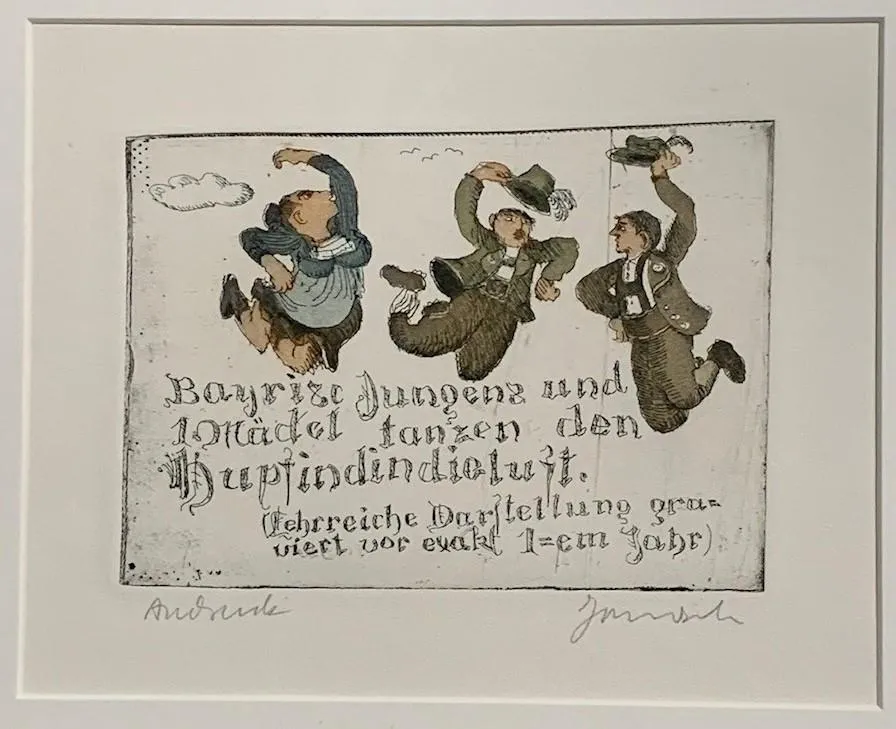 Bayrisc Jungens und
1 Mädel tanzen den
Hupfindindieluft.
(Lehrreiche Darstellung gra=
viert vor exakt 1=em Jahr)
Andruck
Janosch